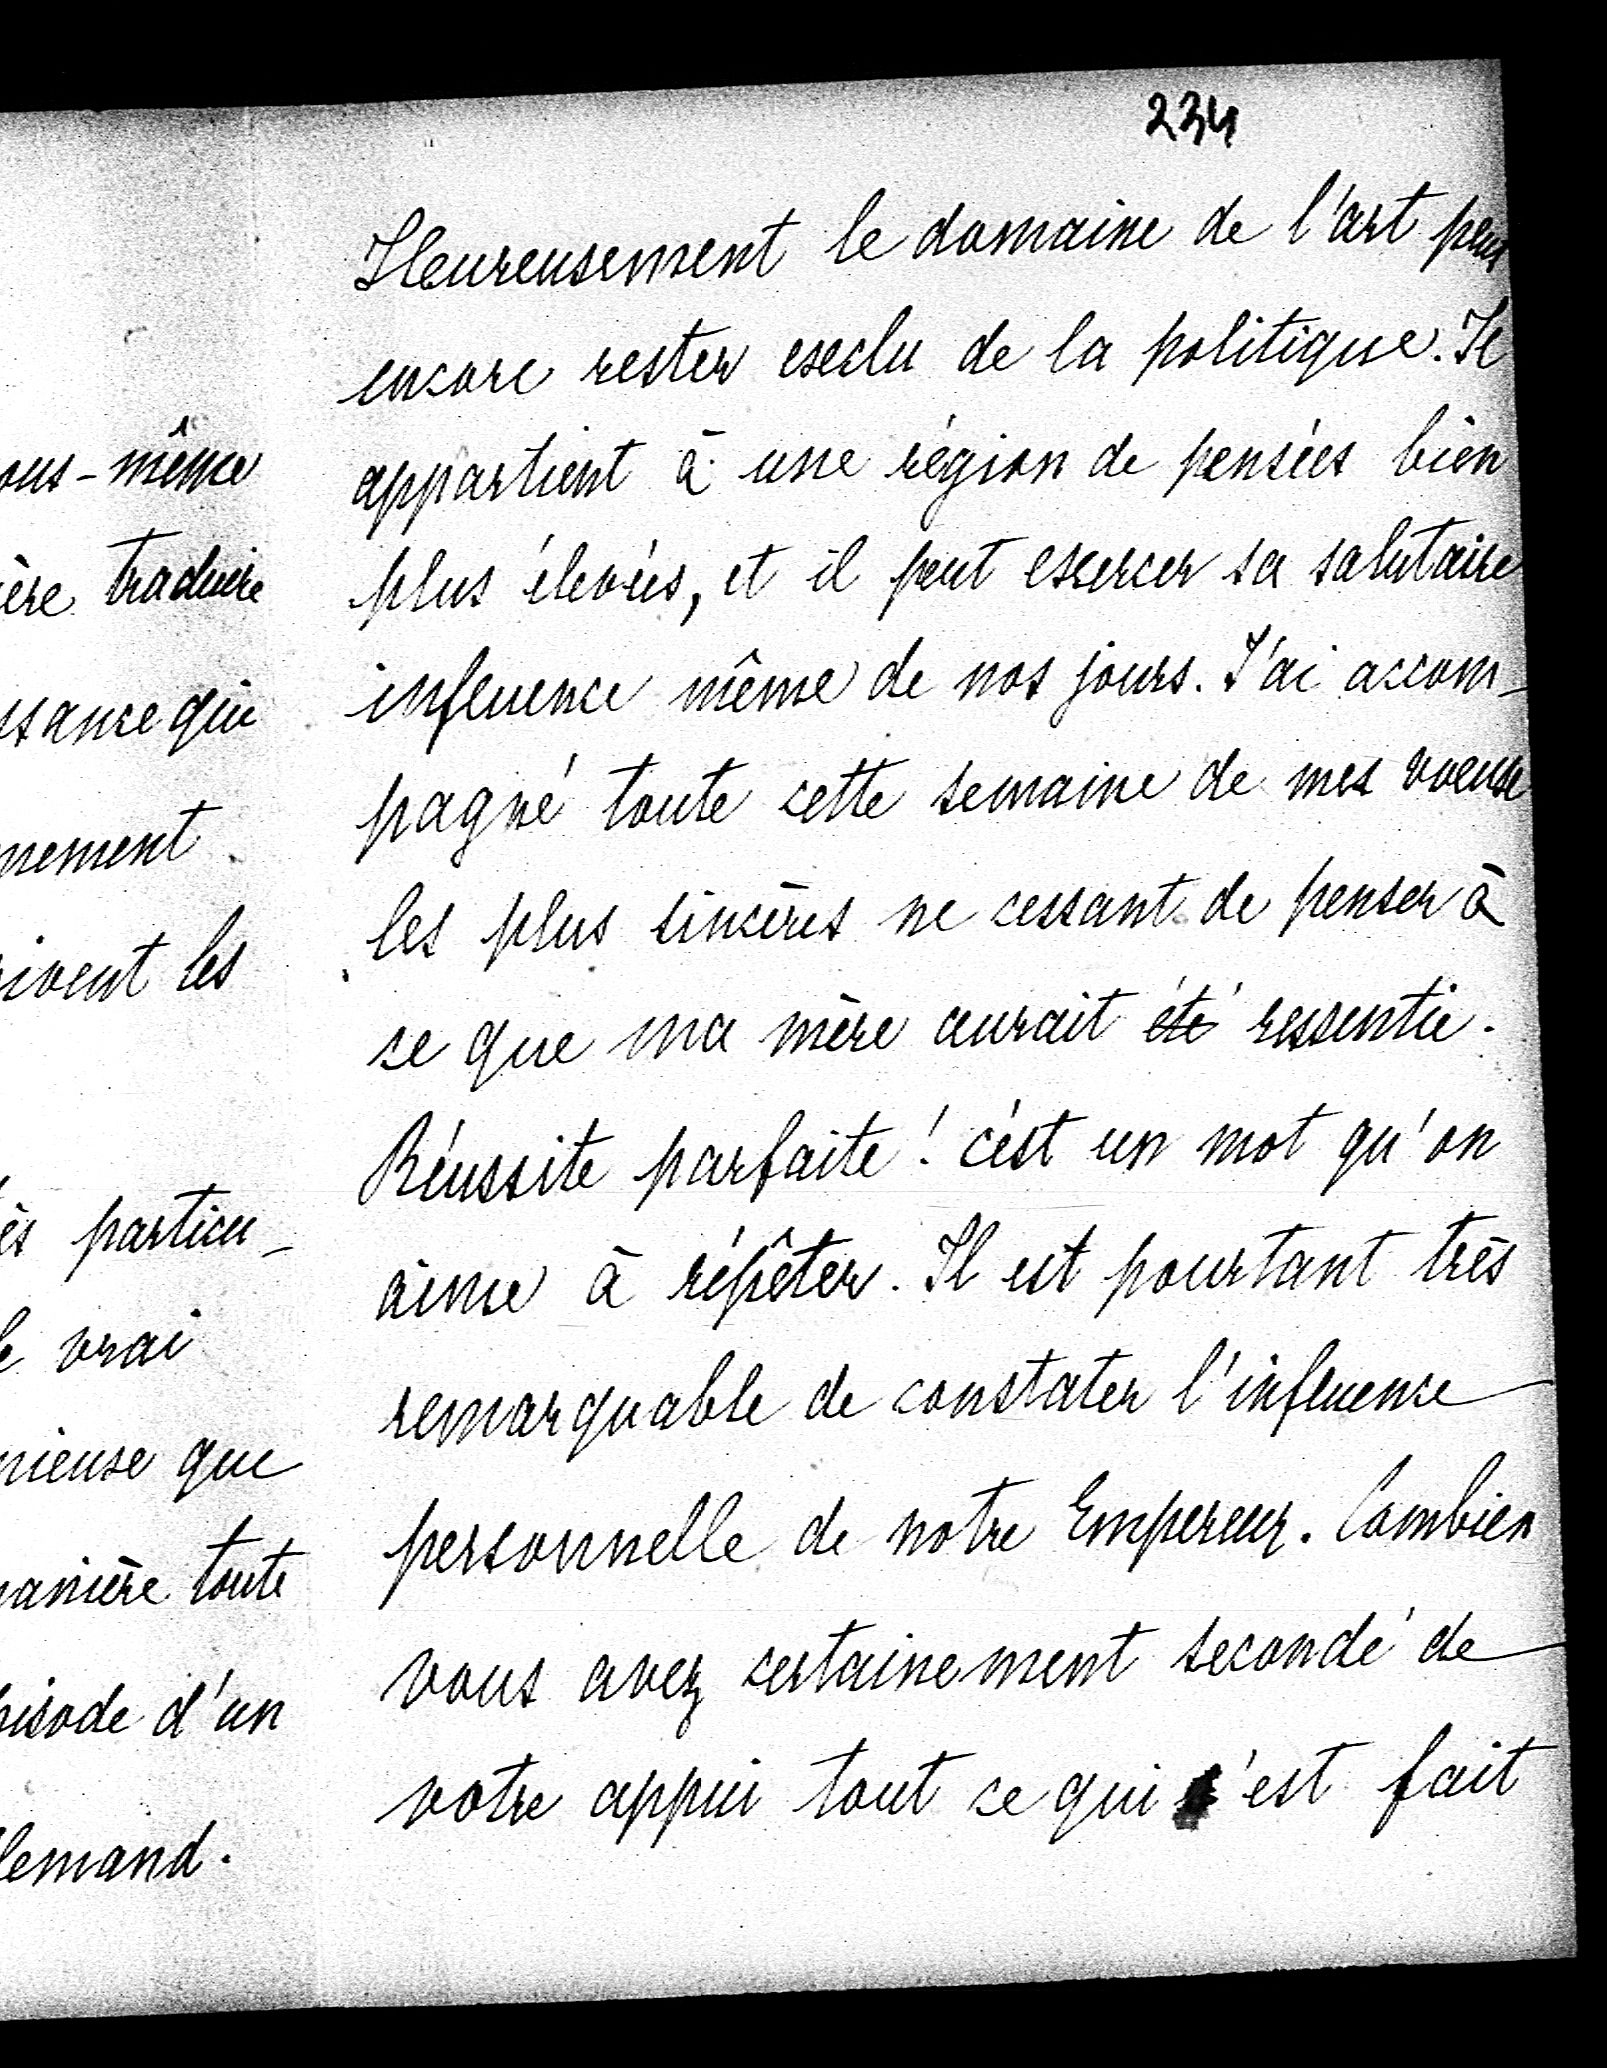 234
ous-même
ère traduire
ssance qui
nement
rivent les
ès particu-
le vrai
nieuse que
manière toute
pisode d'un
lemand.
Heureusement le domaine de l'art peut
encore rester exclu de la politique. Il
appartient à une région de pensées bien
plus élevées, et il peut exercer sa salutaire
influence même de nos jours. J'ai accom-
pagné toute cette semaine de mes voeux
les plus sincères ne cessant de penser à
ce que ma mère aurait été ressentie.
Réussite parfaite! c'est un mot qu'on
aime à répêter. Il est pourtant très
remarquable de constater l'influence
personnelle de notre Empereur. Combien
vous avez certainement secondé de
votre appui tout ce qui s'est fait